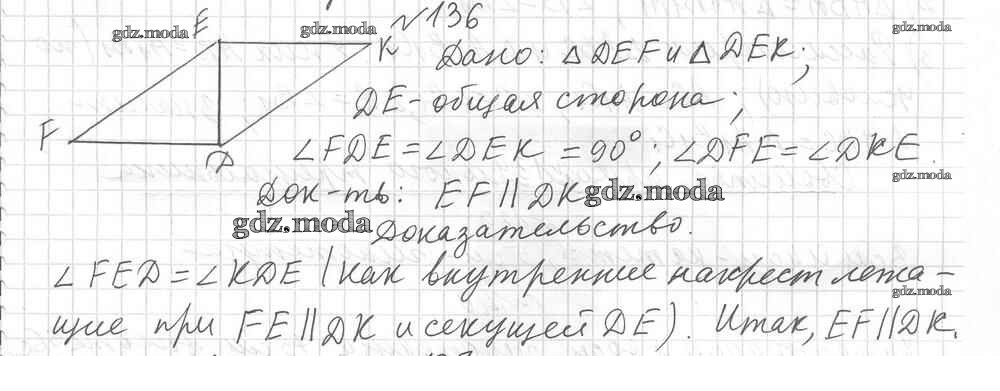 №136
gdz.moda gdz.moda gdz.moda
E K
Дано: △DEF и △DEK;
DE - общая сторона;
F D
∠FDE = ∠DEK = 90°; ∠DFE = ∠DKE.
gdz.moda
Док-ть: EF || DK gdz.moda
gdz.moda Доказательство.
∠FED = ∠KDE (как внутренние накрест лежа-
gdz.moda
щие при FE || DK и секущей DE). Итак, EF || DK.